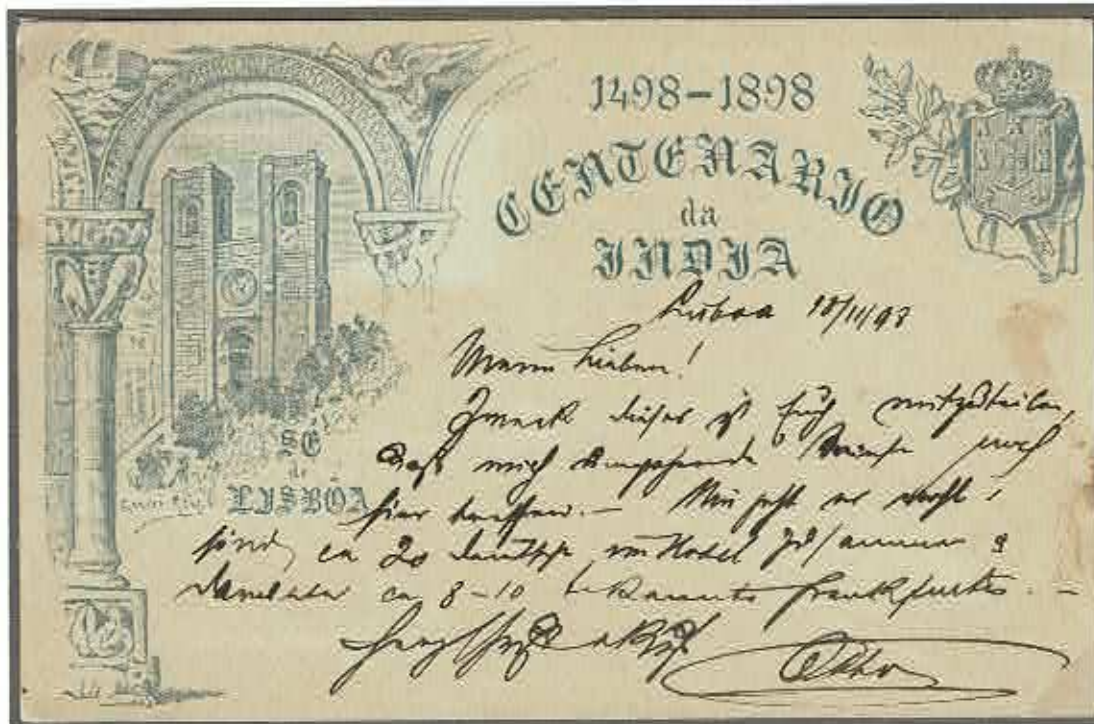 1498-1898
CENTENARIO
da
INDIA
SÉ
de
LISBOA
Lisboa 18/11/98
Meine Lieben!
Zweck dieses ist Euch mitzuteilen,
daß mich noch
hier treffen. – Mir geht es wohl,
sind ca 20 im Hotel zusammen &
darunter ca 8-10 bekannte Frankfurter. –
Otto